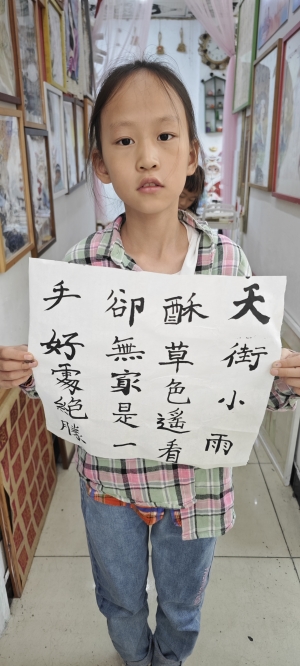 天街小雨
酥草色遙看
卻無是一
好處絕勝